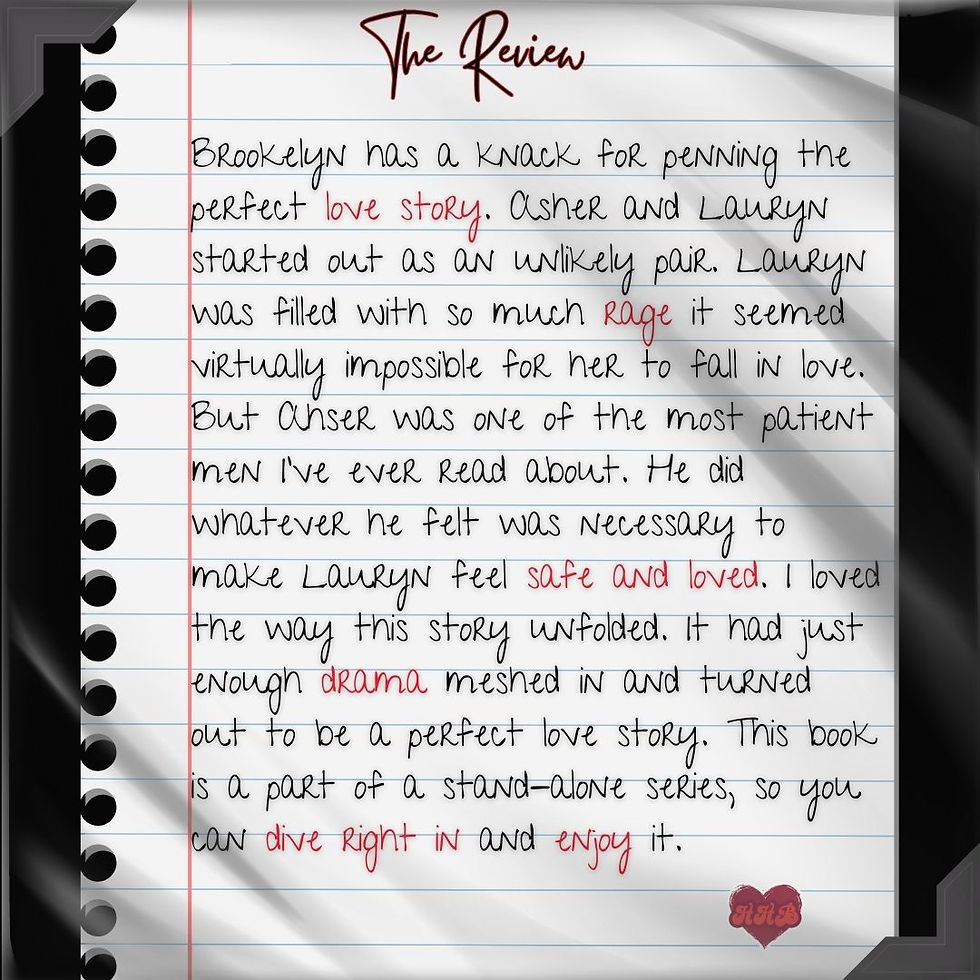 The Review
Brookelyn has a knack for penning the
perfect love story. Asher and Lauryn
started out as an unlikely pair. Lauryn
was filled with so much rage it seemed
virtually impossible for her to fall in love.
But Ahser was one of the most patient
men I've ever read about. He did
whatever he felt was necessary to
make Lauryn feel safe and loved. I loved
the way this story unfolded. It had just
enough drama meshed in and turned
out to be a perfect love story. This book
is a part of a stand-alone series, so you
can dive right in and enjoy it.
HHB